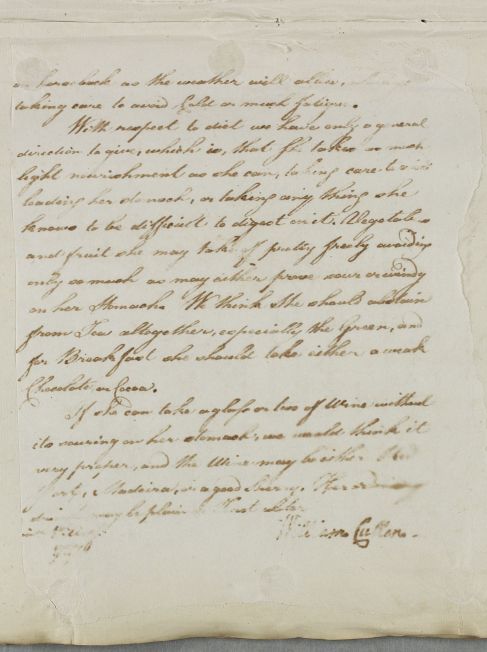 on horseback as the weather will allow, always
taking care to avoid Cold or much fatigue.
With respect to diet we have only a general
direction to give, which is, that She takes as much
light nourishment as she can, taking care to avoid
loading her stomach, or taking any thing she
knows to be difficult to digest on it. Vegetables
and fruit she may take of pretty freely avoiding
only so much as may either prove sour or windy
on her Stomach. We think She should abstain
from Tea altogether, especially the Green, and
for Breakfast she should take either a weak
Chocolate or Cocoa.
If she can take a glass or two of Wine without
its souring on her stomach, we would think it
very proper, and the Wine may be either Red
Port, Madeira, or a good Sherry. Her ordinary
drink may be plain or Toast Water
William Cullen.